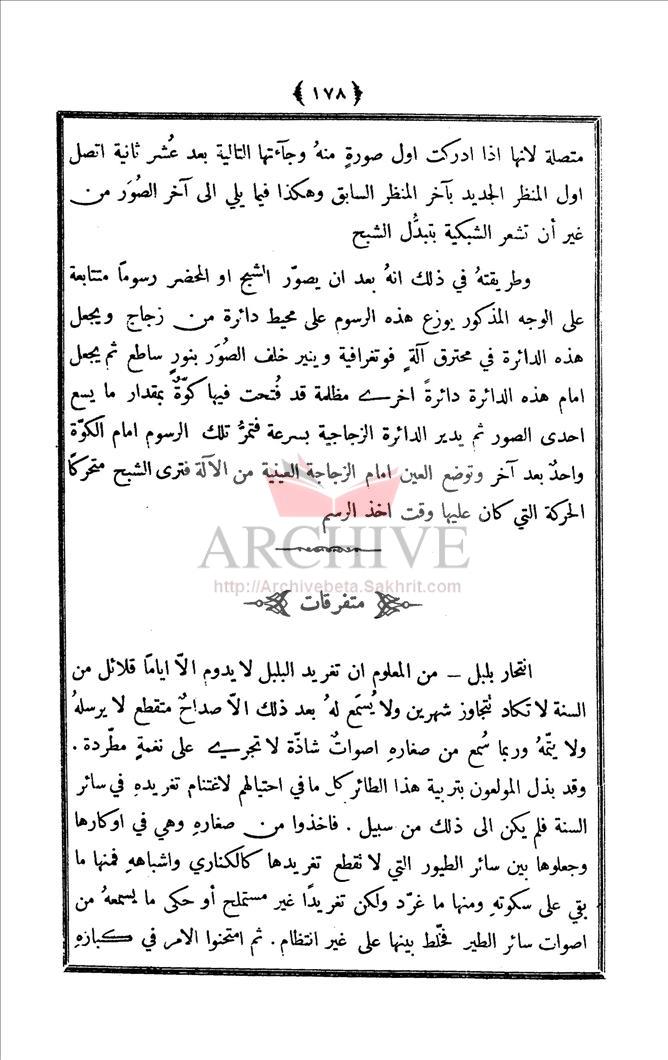 ﴿ ١٧٨ ﴾
متصلة لانها اذا ادركت اول صورةٍ منهُ وجآءتها التالية بعد عُشر ثانية اتصل
اول المنظر الجديد بآخر المنظر السابق وهكذا فيما يلي الى آخر الصُوَر من
غير أن تشعر الشبكية بتبدُّل الشبح
وطريقتهُ في ذلك انهُ بعد ان يصوّر الشبح او المحضر رسومًا متتابعة
على الوجه المذكور يوزع هذه الرسوم على محيط دائرة من زجاج ويجعل
هذه الدائرة في محترق آلةٍ فوتغرافية وينير خلف الصُوَر بنورٍ ساطع ثم يجعل
امام هذه الدائرة دائرةً اخرے مظلمة قد فُتحت فيها كوّةٌ بمقدار ما يسع
احدى الصور ثم يدير الدائرة الزجاجية بسرعة فتمرُّ تلك الرسوم امام الكوّة
واحدٌ بعد آخر وتوضع العين امام الزجاجة العينية من الآلة فترى الشبح متحركًا
الحركة التي كان عليها وقت اخذ الرسم
ARCHIVE
http://Archivebeta.Sakhrit.com
متفرقات
انتحار بلبل – من المعلوم ان تغريد البلبل لا يدوم الّا ايامًا قلائل من
السنة لا تكاد تتجاوز شهرين ولا يُستمَع لهُ بعد ذلك الّا صداحٌ متقطع لا يرسلهُ
ولا يتمّهُ وربما سُمع من صغارهِ اصواتٌ شاذّة لا تجرے على نغمةٍ مطّردة .
وقد بذل المولعون بتربية هذا الطائر كل ما في احتيالهم لاغتنام تغريدهِ في سائر
السنة فلم يكن الى ذلك من سبيل . فاخذوا من صغارهِ وهي في اوكارها
وجعلوها بين سائر الطيور التي لا نقطع تغريدها كالكناري واشباههِ فمنها ما
بقي على سكوتهِ ومنها ما غرّد ولكن تغريدًا غير مستملح أو حكى ما يسمعهُ من
اصوات سائر الطير فخلّط بينها على غير انتظام . ثم امتحنوا الامر في كبارهِ